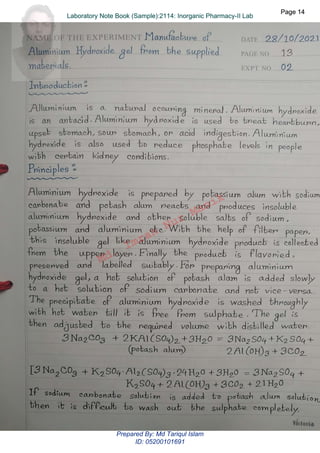 Page 14
Laboratory Note Book (Sample):2114: Inorganic Pharmacy-II Lab
NAME OF THE EXPERIMENT Manufacture of
Aluminium Hydroxide gel from the supplied
materials.
DATE 28/10/2021
PAGE NO 13
EXPT NO 02
Introduction :
Alluminium is a natural occuring mineral. Aluminium hydroxide
is an antacid. Aluminium hydroxide is used to treat heartburn,
upset stomach, sour stomach, or acid indigestion. Aluminium
hydroxide is also used to reduce phosphate levels in people
with certain kidney conditions.
Principles :
Aluminium hydroxide is prepared by potassium alum with sodium
carbonate and potash alum reacts and produces insoluble
aluminium hydroxide and other soluble salts of sodium,
potassium and aluminium etc. With the help of filter paper,
this insoluble gel like aluminium hydroxide product is collected
from the upper layer. Finally the product is flavoried,
preserved and labolled suitably. For preparing aluminium
hydroxide gel, a hot solution of potash alam is added slowly
to a hot solution of sodium carbonate and not vice-versa.
The precipitate of aluminium hydroxide is washed throughly
with hot water till it is free from sulphate. The gel is
then adjusted to the required volume with distilled water.
3 Na2CO3 + 2KAl(SO4)2 + 3H2O = 3Na2SO4 + K2SO4 +
(potash alum) 2 Al(OH)3 + 3CO2.
[3 Na2CO3 + K2SO4. Al2(SO4)3.24H2O + 3H2O = 3Na2SO4 +
K2SO4 + 2Al(OH)3 + 3CO2 + 21H2O
If sodium carbonate solution is added to potash alum solution,
then it is difficult to wash out the sulphate completely.
Victoria
Prepared By: Md Tariqul Islam
ID: 05200101691